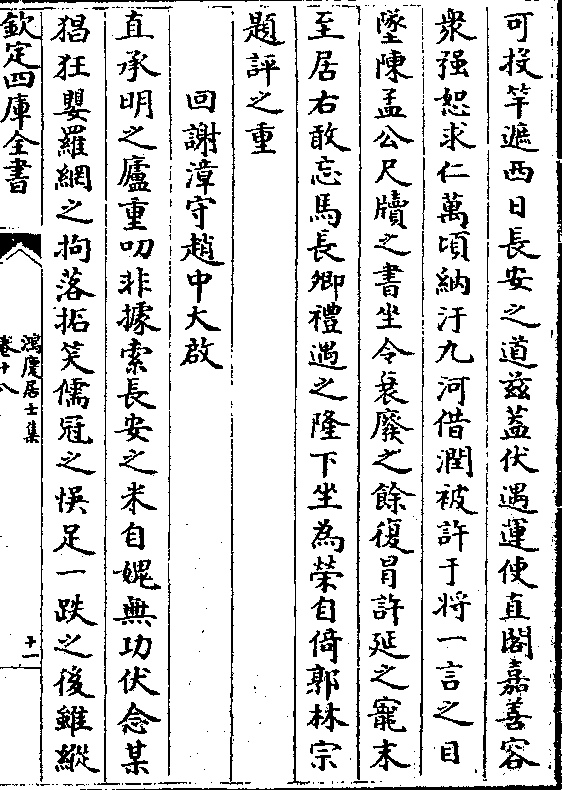 可投竿遮西日長安之道兹蓋伏遇運使直閣嘉善容
衆强恕求仁萬頃納汙九河借潤被許于將一言之目
墜陳孟公尺牘之書坐令衰廢之餘復冒許延之寵末
至居右敢忘馬長卿禮遇之隆下坐為榮自倚郭林宗
題評之重
回謝漳守趙中大啟
直承明之廬重叨非據索長安之米自媿無功伏念某
猖狂嬰羅網之拘落拓笑儒冠之悞足一跌之後雖縱
欽定四庫全書
鴻慶居士集
卷十八
十一